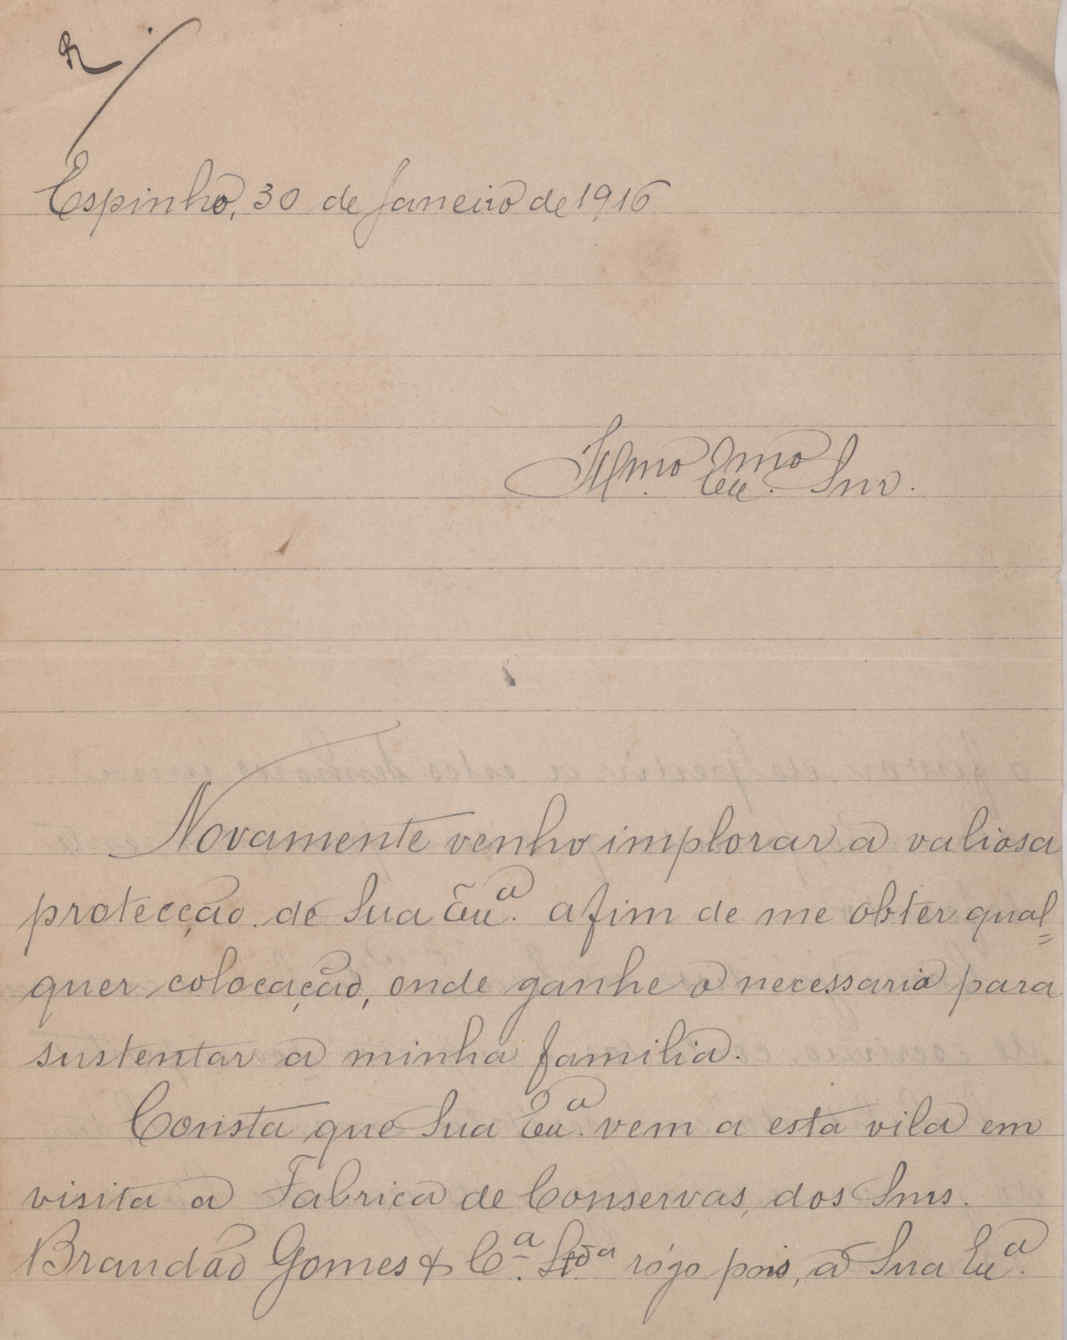 R
Espinho, 30 de Janeiro de 1916
Illmo. Exmo. Snr.
Novamente venho implorar a valiosa
protecção de Sua Exa. afim de me obter qual=
quer colocação, onde ganhe o necessario para
sustentar a minha familia.
Consta que Sua Exa. vem a esta vila em
visita a Fabrica de Conservas, dos Snrs.
Brandão Gomes & Ca. Ltda rógo pois, a Sua Exa.